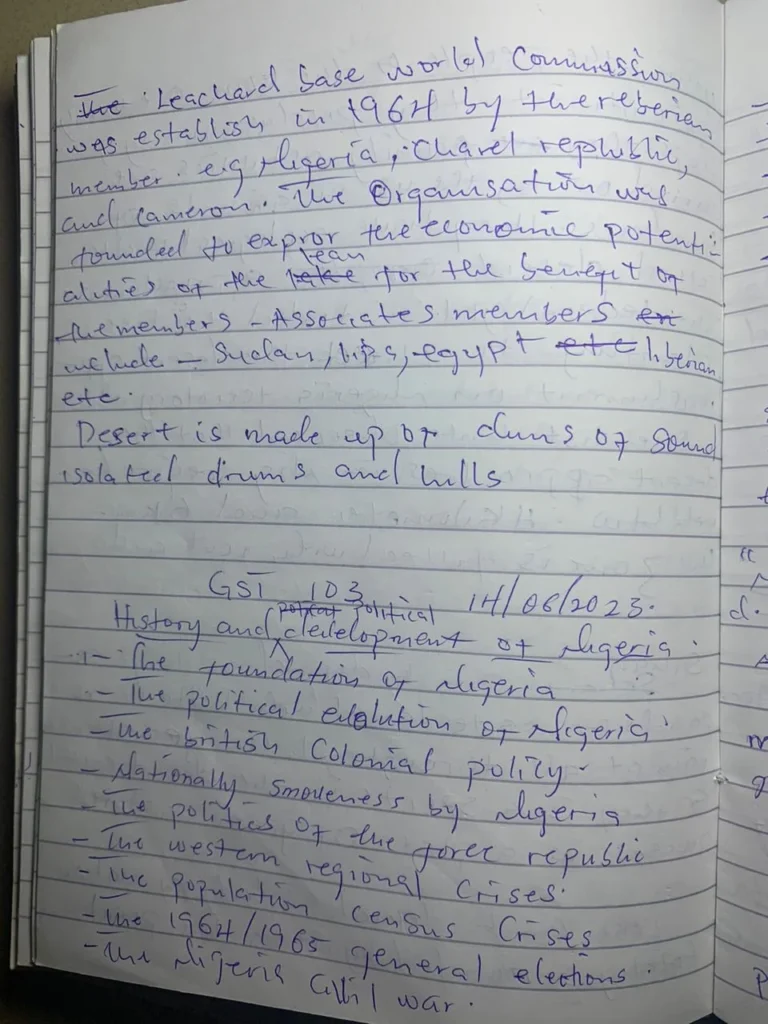 The Leachard base world Commission
was establish in 1964 by the reberian
member. e.g Nigeria, Charel republic,
and cameron. The Organisation was
founded to expror the economic potenti-
alities of the lake lean for the benefit of
the members - Associates members en
include - Sudan, lips, egypt etc liberian
etc.
Desert is made up of duns of sound
isolated drums and hills
GST 103 14/06/2023.
political
History and development of Nigeria.
- The foundation of Nigeria
- The political evolution of Nigeria
- The british Colonial policy.
- Nationally smoveness by Nigeria
- The politics of the forec republic
- The western regional Crises.
- The population census Crises
- The 1964/1965 general elections.
- The Nigeria civil war.